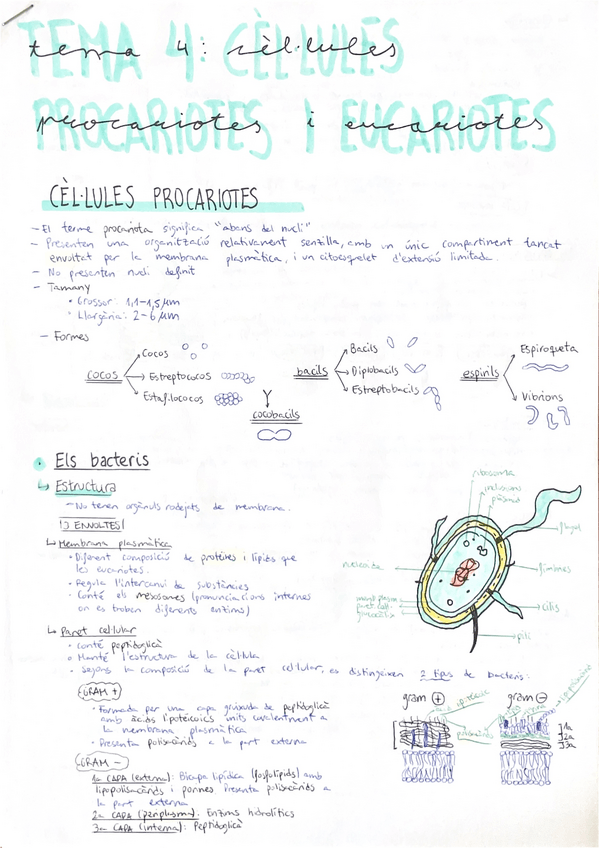 TEMA 4: CÈL·LULES
tema 4: cèl·lules
PROCARIOTES I EUCARIOTES
procariotes i eucariotes
CÈL·LULES PROCARIOTES
- El terme procariota significa "abans del nucli"
- Presenten una organització relativament senzilla, amb un únic compartiment tancat
envoltat per la membrana plasmàtica, i un citoesquelet d'extensió limitada.
- No presenten nucli definit
- Tamany
• Grossor: 1,1-1,5 μm
• Llargària: 2-6 μm
- Formes
cocos
Cocos
Estreptococos
Estafilococos
cocobacils
bacils
Bacils
Diplobacils
Estreptobacils
espirils
Espiroqueta
Vibrions
• Els bacteris
Estructura
- No tenen orgànuls rodejats de membrana.
ENVOLTES
Membrana plasmàtica
• Diferent composició de proteïnes i lípids que
les eucariotes.
• Regula l'intercanvi de substàncies
• Conté els mesosomes (pronunciacions internes
on es troben diferents enzims)
ribosoma
mesosoma
plàsmid
flagel
fímbries
cilis
pili
nucleoide
Paret cel·lular
• conté peptidoglicà
• Manté l'estructura de la cèl·lula
• segons la composició de la paret cel·lular, es distingeixen 2 tipus de bacteris:
GRAM +
• Formada per una capa gruixuda de peptidoglicà
amb àcids lipoteicoics units covalentment a
la membrana plasmàtica
• Presenta polisacàrids a la part externa
GRAM -
1a CAPA (externa): Bicapa lipídica (fosfolípids) amb
lipopolisacàrids i porines. Presenta polisacàrids a
la part externa
2a CAPA (periplasm): Enzims hidrolítics
3a CAPA (interna): Peptidoglicà
gram +
gram -
1a
2a
3a